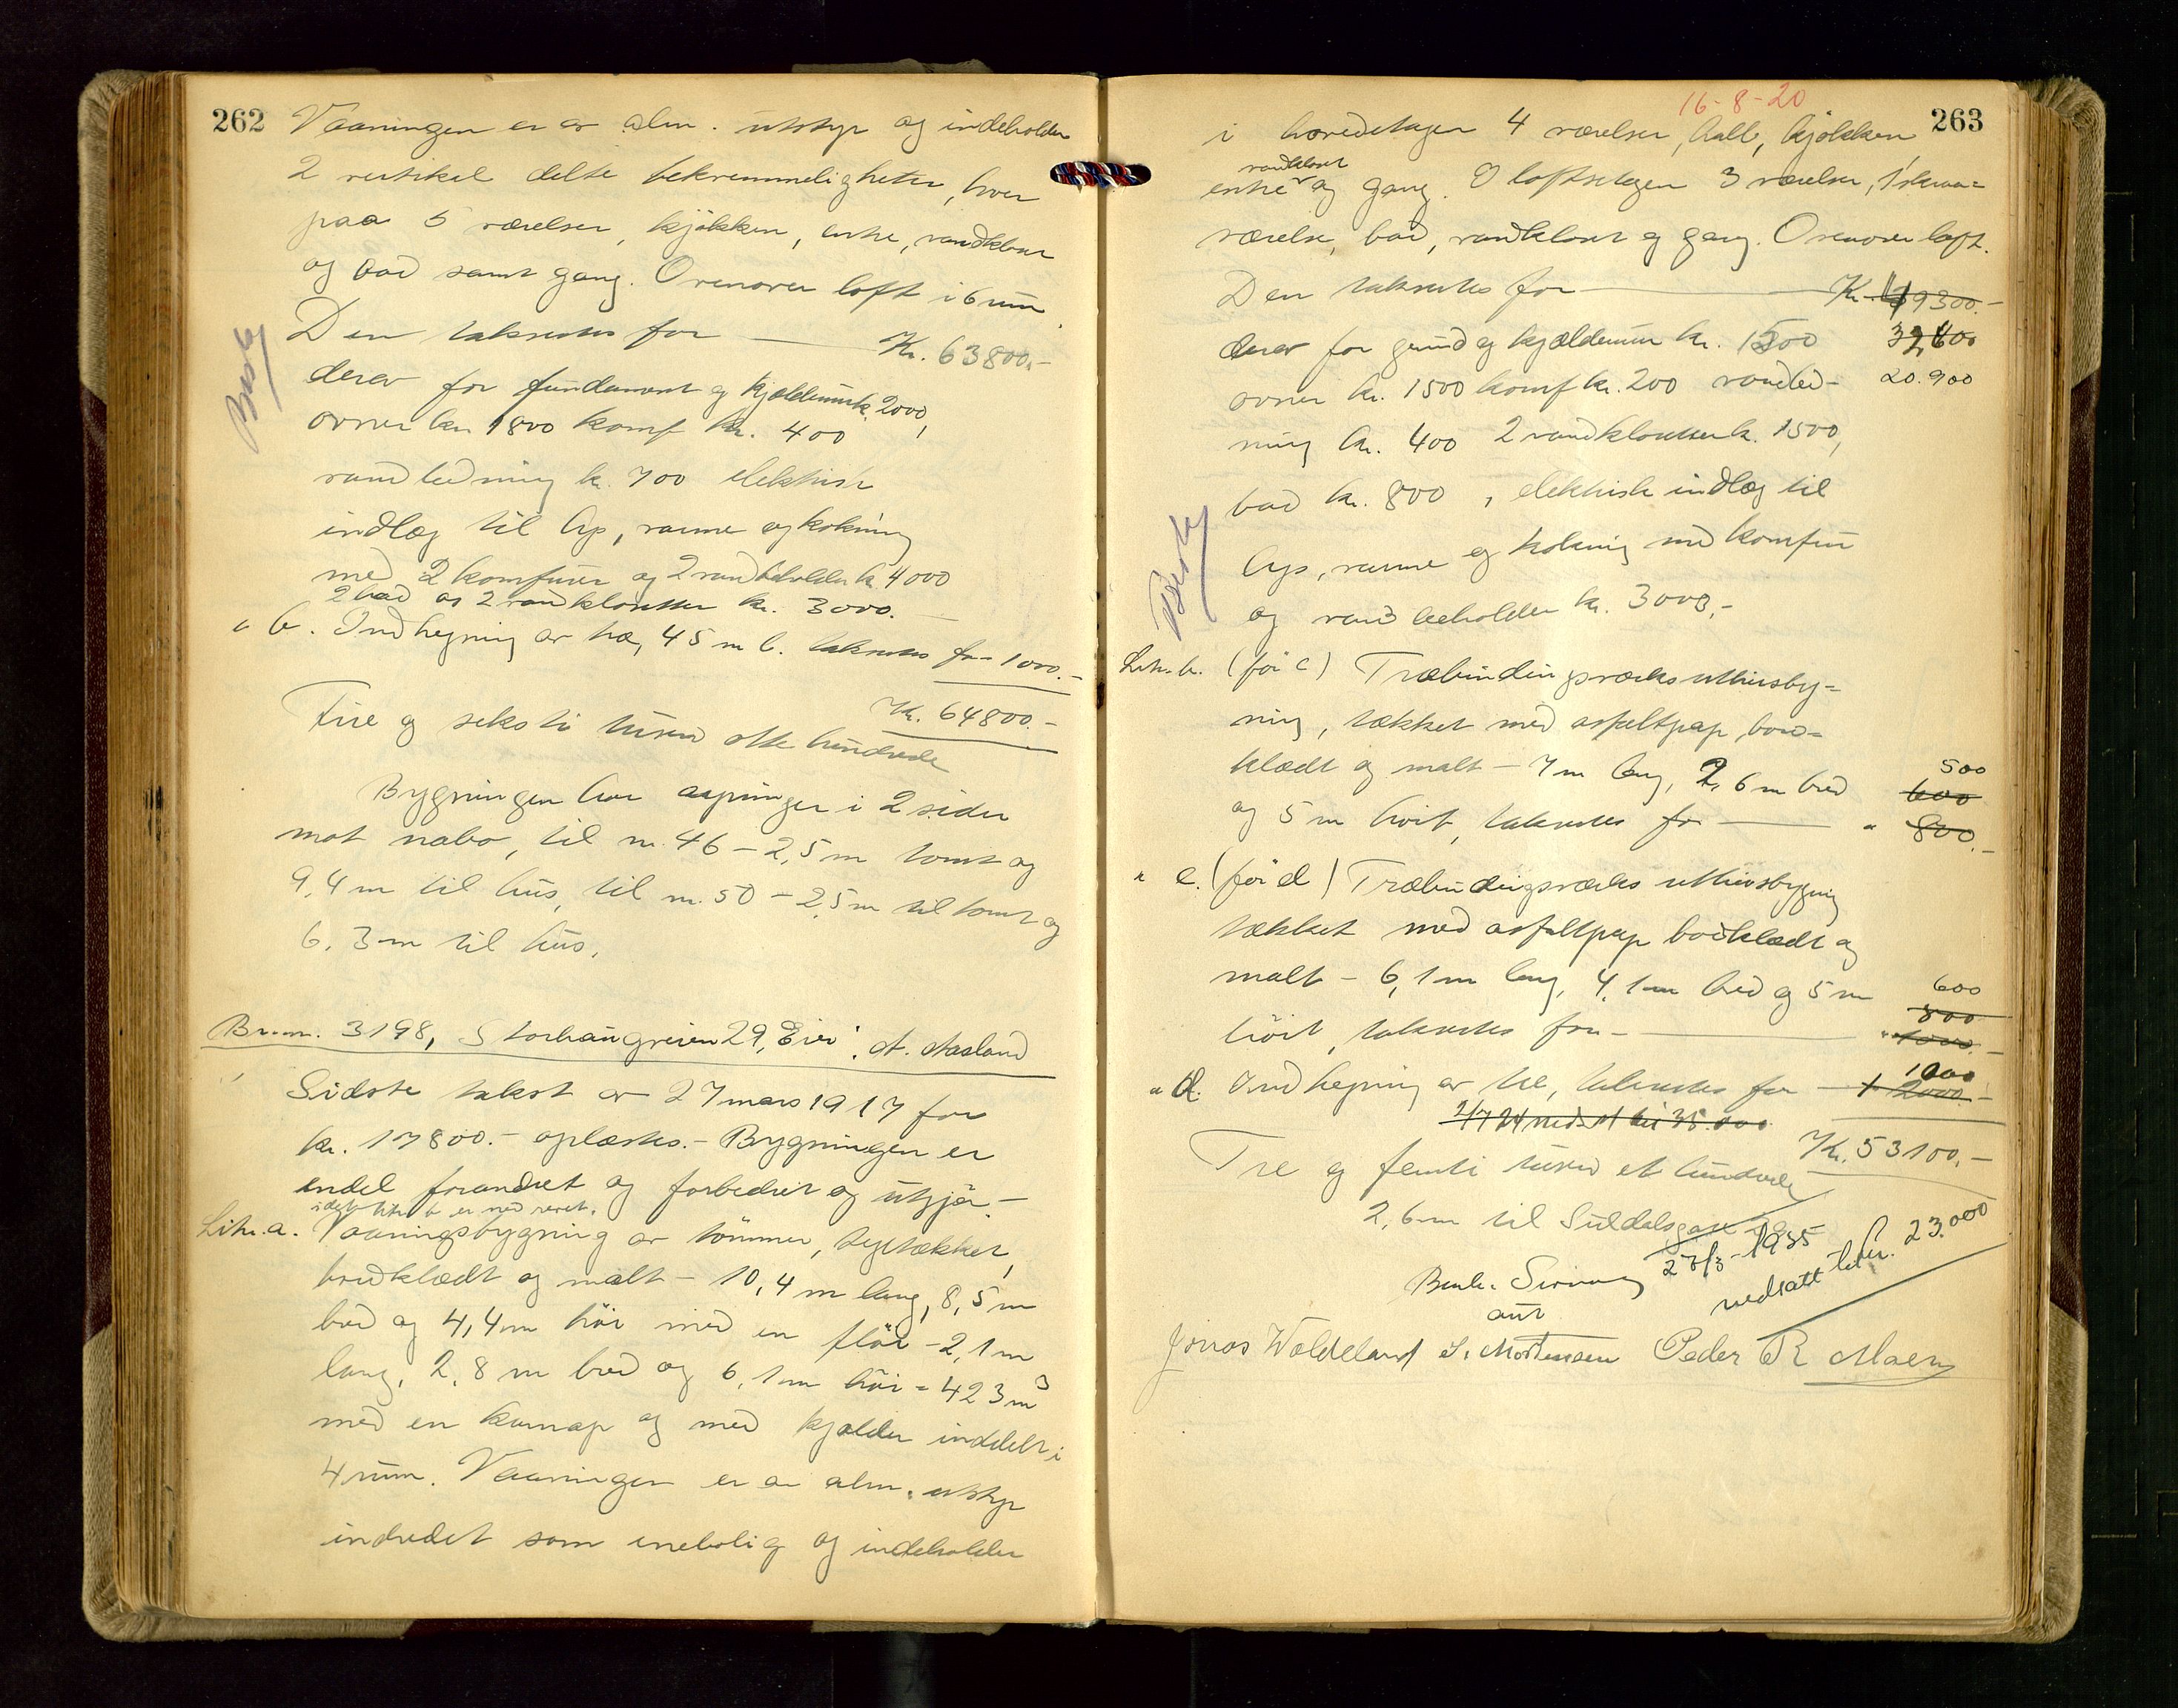 262
Vaaningen er av alm. utstyr og indeholder
2 vertikal delte bekvemmeligheter, hver
paa 5 værelser, kjøkken, entre, vandkloset
og bad samt gang. Ovenover loft i 6 rum.
Den takseres for Kr. 63800,-
derav for fundament og kjælderum k. 2000,
ovner kr. 1800 komf kr. 400
vandledning k. 700 elektrisk
indlæg til lys, varme og kokning
med 2 komfurer og 2 vandbeholder k. 4000
2 bad og 2 vandklosetter kr. 3000.
" b. Indhegning av træ, 45 m l. takseres for 1000.-
Kr. 64800.-
Fire og seksti tusen otte hundrede
Bygningen har aapninger i 2 sider
mot nabo, til nr. 46 - 2,5 m tomt og
9,4 m til hus, til nr. 50 - 2,5 m til tomt og
6,3 m til hus.
Br. nr. 3198, Storhaugveien 29, Eier: A. Aasland
Sidste takst av 27 mars 1917 for
kr. 17800.- oplæstes.- Bygningen er
endel forandret og forbedret og utgjør -
idet litr. b er ned revet.
Litr. a. Vaaningsbygning av tømmer, tegltækket,
bordklædt og malt - 10,4 m lang, 8,5 m
bred og 4,4 m høi med en fløi - 2,1 m
lang, 2,8 m bred og 6,1 m høi = 423 m3
med en karnap og med kjælder inddelt i
4 rum. Vaaningen er av alm. utstyr
indredet som enebolig og indeholder
16-8-20
263
i hovedetagen 4 værelser, hall, kjøkken
vandklosett
entre og gang. I loftsetagen 3 værelser, 1 skraa=
værelse, bad, vandkloset og gang. Ovenover loft.
Den takseres for Kr. 49300.-
derav for grund og kjælderum kr. 1500 32600
ovner kr. 1500 komf kr. 200 vandled- 20.900
ning kr. 400 2 vandklosetter k. 1500,
bad kr. 800, elektrisk indlæg til
lys, varme og kokning med komfur
og vandbeholder kr. 3000,-
Litr. b. (før c) Træbindingsværks uthusbyg=
ning, tækket med asfaltpap, bord=
klædt og malt - 7 m lang, 2,6 m bred 500
600
og 5 m høit, takseres for " 800.-
" c. (før d) Træbindingsværks uthusbygning
tækket med asfaltpap bordklædt og
malt - 6,1 m lang, 4,1 m bred og 5 m 600
800
høit, takseres for - " 1000.-
1000
" d. Indhegning av træ, takseres for - 2000.-
2/7 24 neds. til kr 35.000
Kr. 53100.-
Tre og femti tusen et hundrede
2,6 m til Suldalsgate
27/3 - 1935
nedsatt til kr. 23.000
Jonas Woldeland S. Mortensen Peder R Maeng